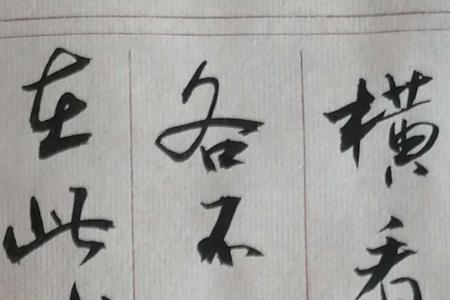 横看
各不
在此